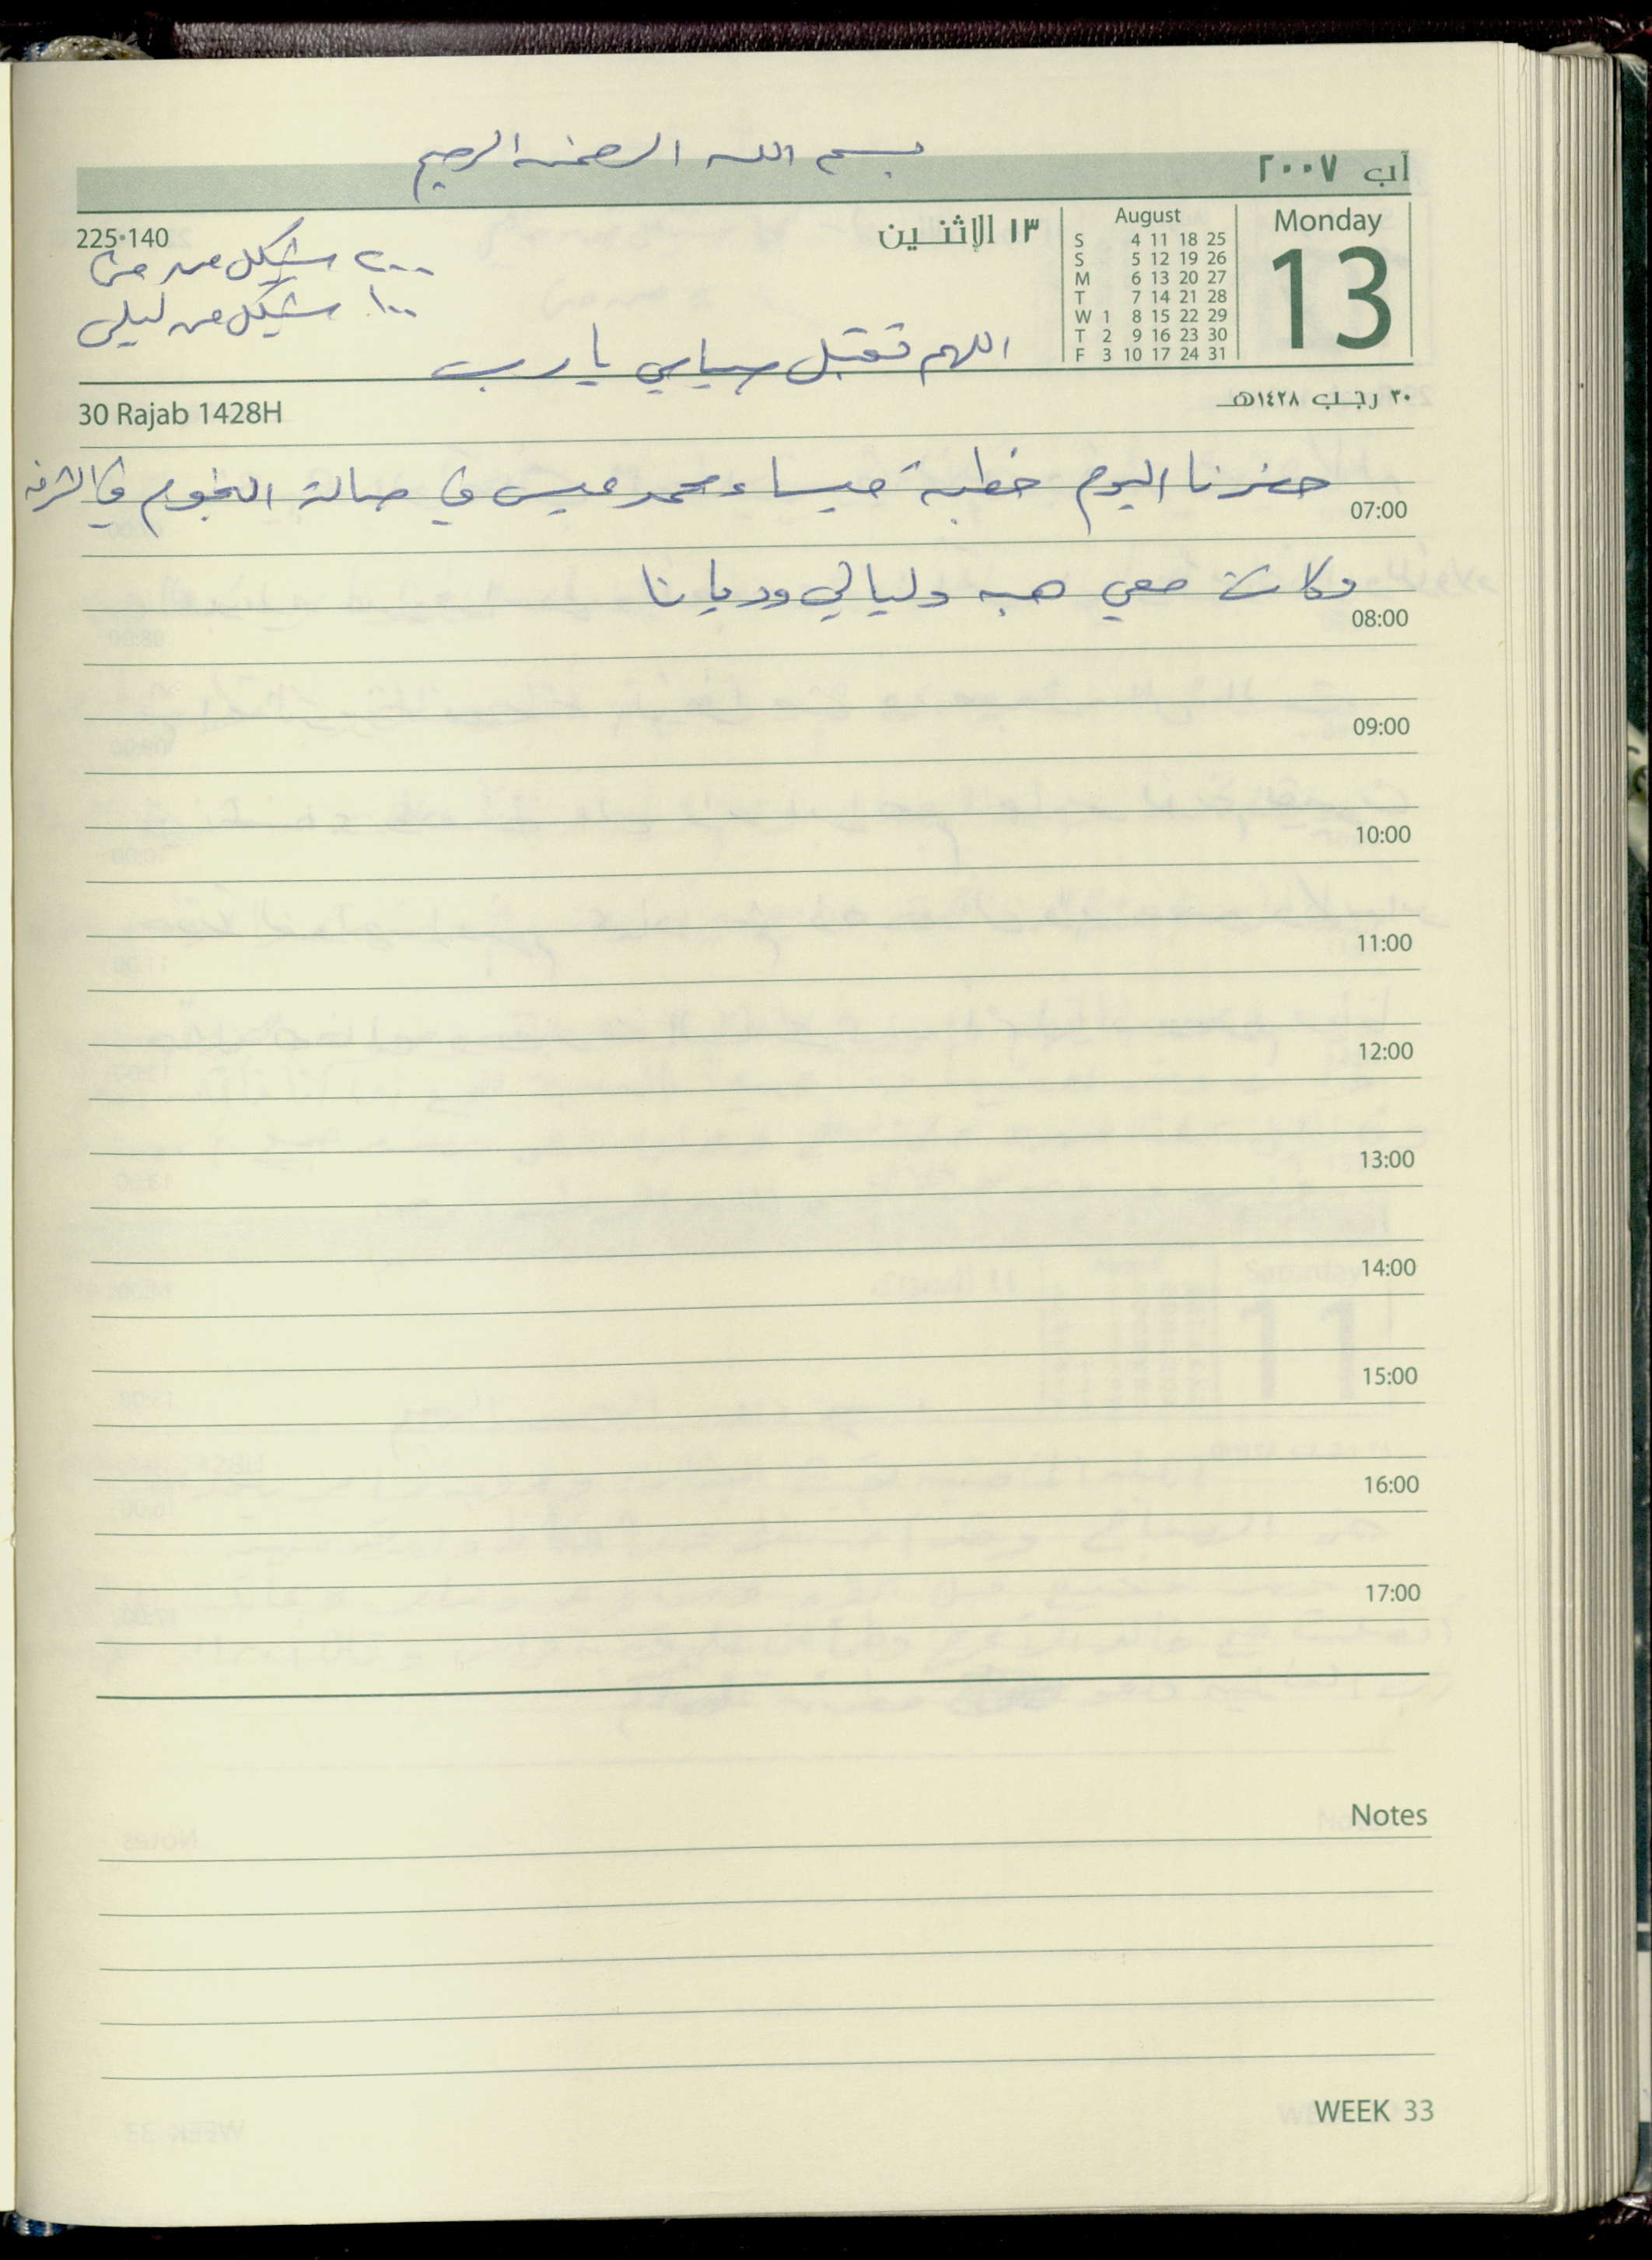 بسم الله الرحمن الرحيم
آب ٢٠٠٧
Monday
13
August
S 4 11 18 25
S 5 12 19 26
M 6 13 20 27
T 7 14 21 28
W 1 8 15 22 29
T 2 9 16 23 30
F 3 10 17 24 31
١٣ الإثنين
225·140
٢٠٠ شيكل من منى
١٠٠ شيكل من ليلى
اللهم تقبل صيامي يا رب
٣٠ رجب ١٤٢٨هـ
30 Rajab 1428H
حضرنا اليوم خطبة ميساء محمد عيسى في صالة النجوم في الشرفة
07:00
وكانت معي هبه وليالي ودیانا
08:00
09:00
10:00
11:00
12:00
13:00
14:00
15:00
16:00
17:00
Notes
WEEK 33